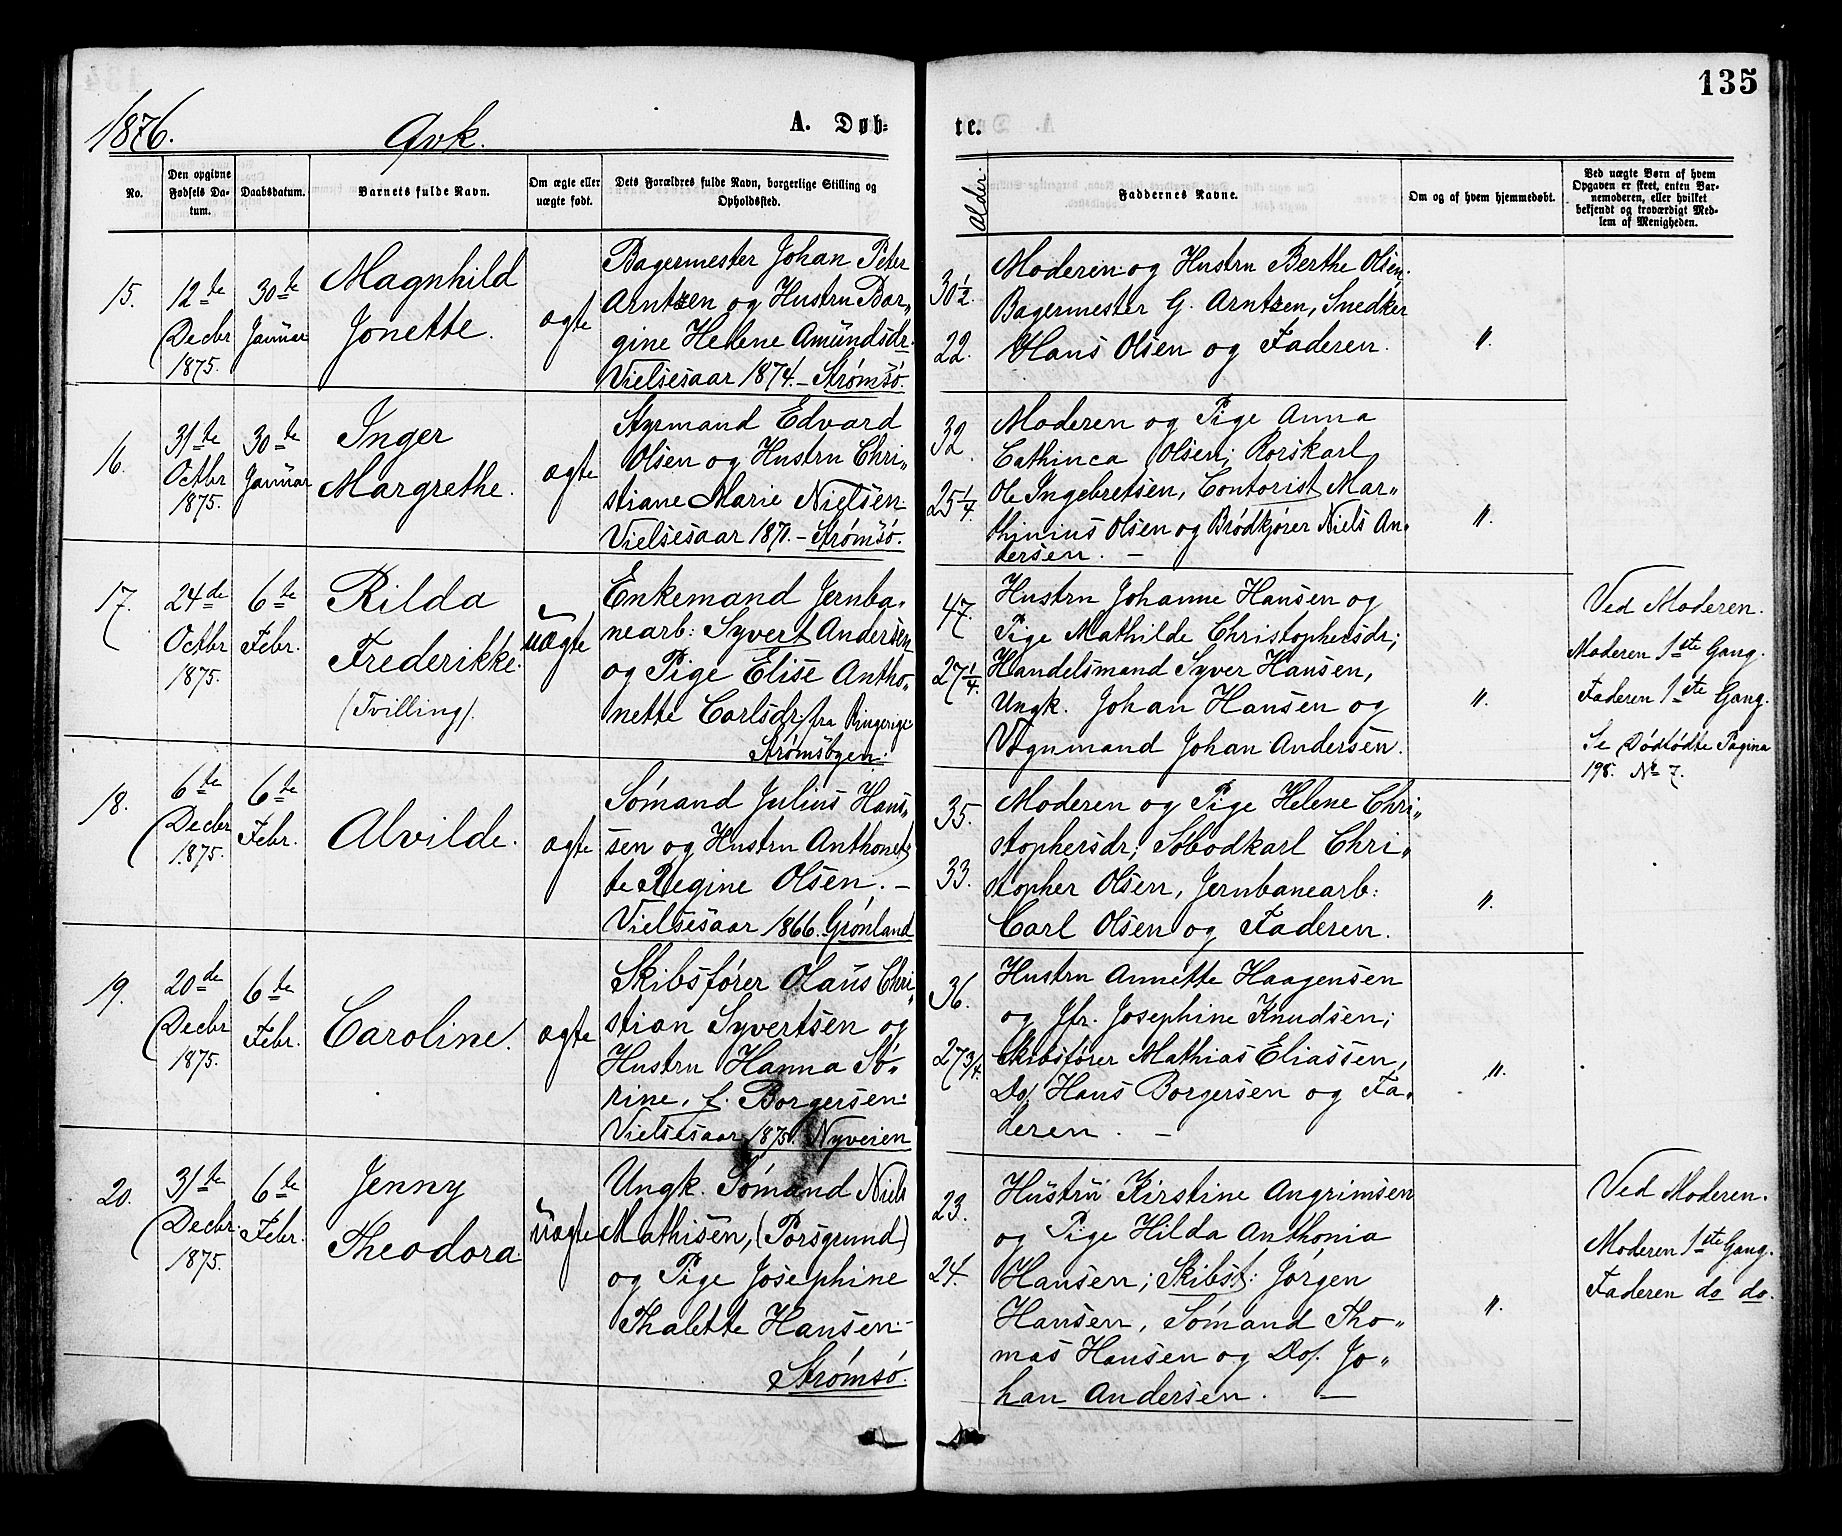 135
1876.
Qvk.
A. Døb-
te.
No.
Den opgivne Fødsels Datum.
Daabsdatum.
Barnets fulde Navn.
Om ægte eller uægte født.
Dets Forældres fulde Navn, borgerlige Stilling og Opholdssted.
Alder.
Faddernes Navne.
Om og af hvem hjemmedøbt.
Ved uægte Børn af hvem Opgaven er skeet, enten Barnemoderen, eller hvilket bekjendt og troværdigt Medlem af Menigheden.
15.
12te
Decbr
1875.
30te
Januar
Magnhild
Jonette.
ægte
Bagermester Johan Peter
Arntzen og Hustru Bor-
gine Helene Amundsdr.
Vielsesaar 1874. - Strømsø.
30½.
22.
Moderen og Hustru Berthe Olsen;
Bagermester G. Arntzen, Snedker
Hans Olsen og Faderen.
"
16.
31te
Octbr
1875.
30te
Januar
Inger
Margrethe.
ægte
Styrmand Edvard
Olsen og Hustru Chri-
stiane Marie Nielsen.
Vielsesaar 1871. - Strømsø.
32.
25¼.
Moderen og Pige Anna
Cathinca Olsen; Rorskarl
Ole Ingebretsen, Contorist Mar-
thinius Olsen og Brødkjører Niels An-
dersen. -
"
17.
24de
Octbr
1875.
6te
Febr.
Rilda
Frederikke.
(Tvilling).
uægte
Enkemand Jernba-
nearb: Syvert Andersen
og Pige Elise Antho-
nette Carlsdr. fra Ringerige
Strømsbyen.
47.
27¼.
Hustru Johanne Hansen og
Pige Mathilde Christophersdr;
Handelsmand Syver Hansen,
Ungk. Johan Hansen og
Vognmand Johan Andersen.
"
Ved Moderen.
Moderen 1ste Gang.
Faderen 1ste Gang.
Se Dødfødte Pagina
198. No 7.
18.
6te
Decbr
1875.
6te
Febr.
Alvilde.
ægte
Sømand Julius Han-
sen og Hustru Anthonet-
te Regine Olsen. -
Vielsesaar 1866. Grønland
35.
33.
Moderen og Pige Helene Chri-
stophersdr; Søbodkarl Chri-
stopher Olsen, Jernbanearb:
Carl Olsen og Faderen.
"
19.
20de
Decbr
1875.
6te
Febr.
Caroline.
ægte
Skibsfører Olaus Chri-
stian Syvertsen og
Hustru Hanna Sø-
rine, f. Borgersen.
Vielsesaar 1875. Nyveien
36.
27¾.
Hustru Annette Haagensen
og Jfr. Josephine Knudsen;
Skibsfører Mathias Eliassen,
Do. Hans Borgersen og Fa-
deren. -
"
20.
31te
Decbr.
1875.
6te
Febr.
Jenny
Theodora.
uægte
Ungk. Sømand Niels
Mathisen, (Porsgrund)
og Pige Josephine
Thalette Hansen. -
Strømsø.
23.
24.
Hustru Kirstine Angrimsen
og Pige Hilda Anthonia
Hansen; Skibst: Jørgen
Hansen, Sømand Tho-
mas Hansen og Do. Jo-
han Andersen. -
"
Ved Moderen.
Moderen 1ste Gang.
Faderen do do.